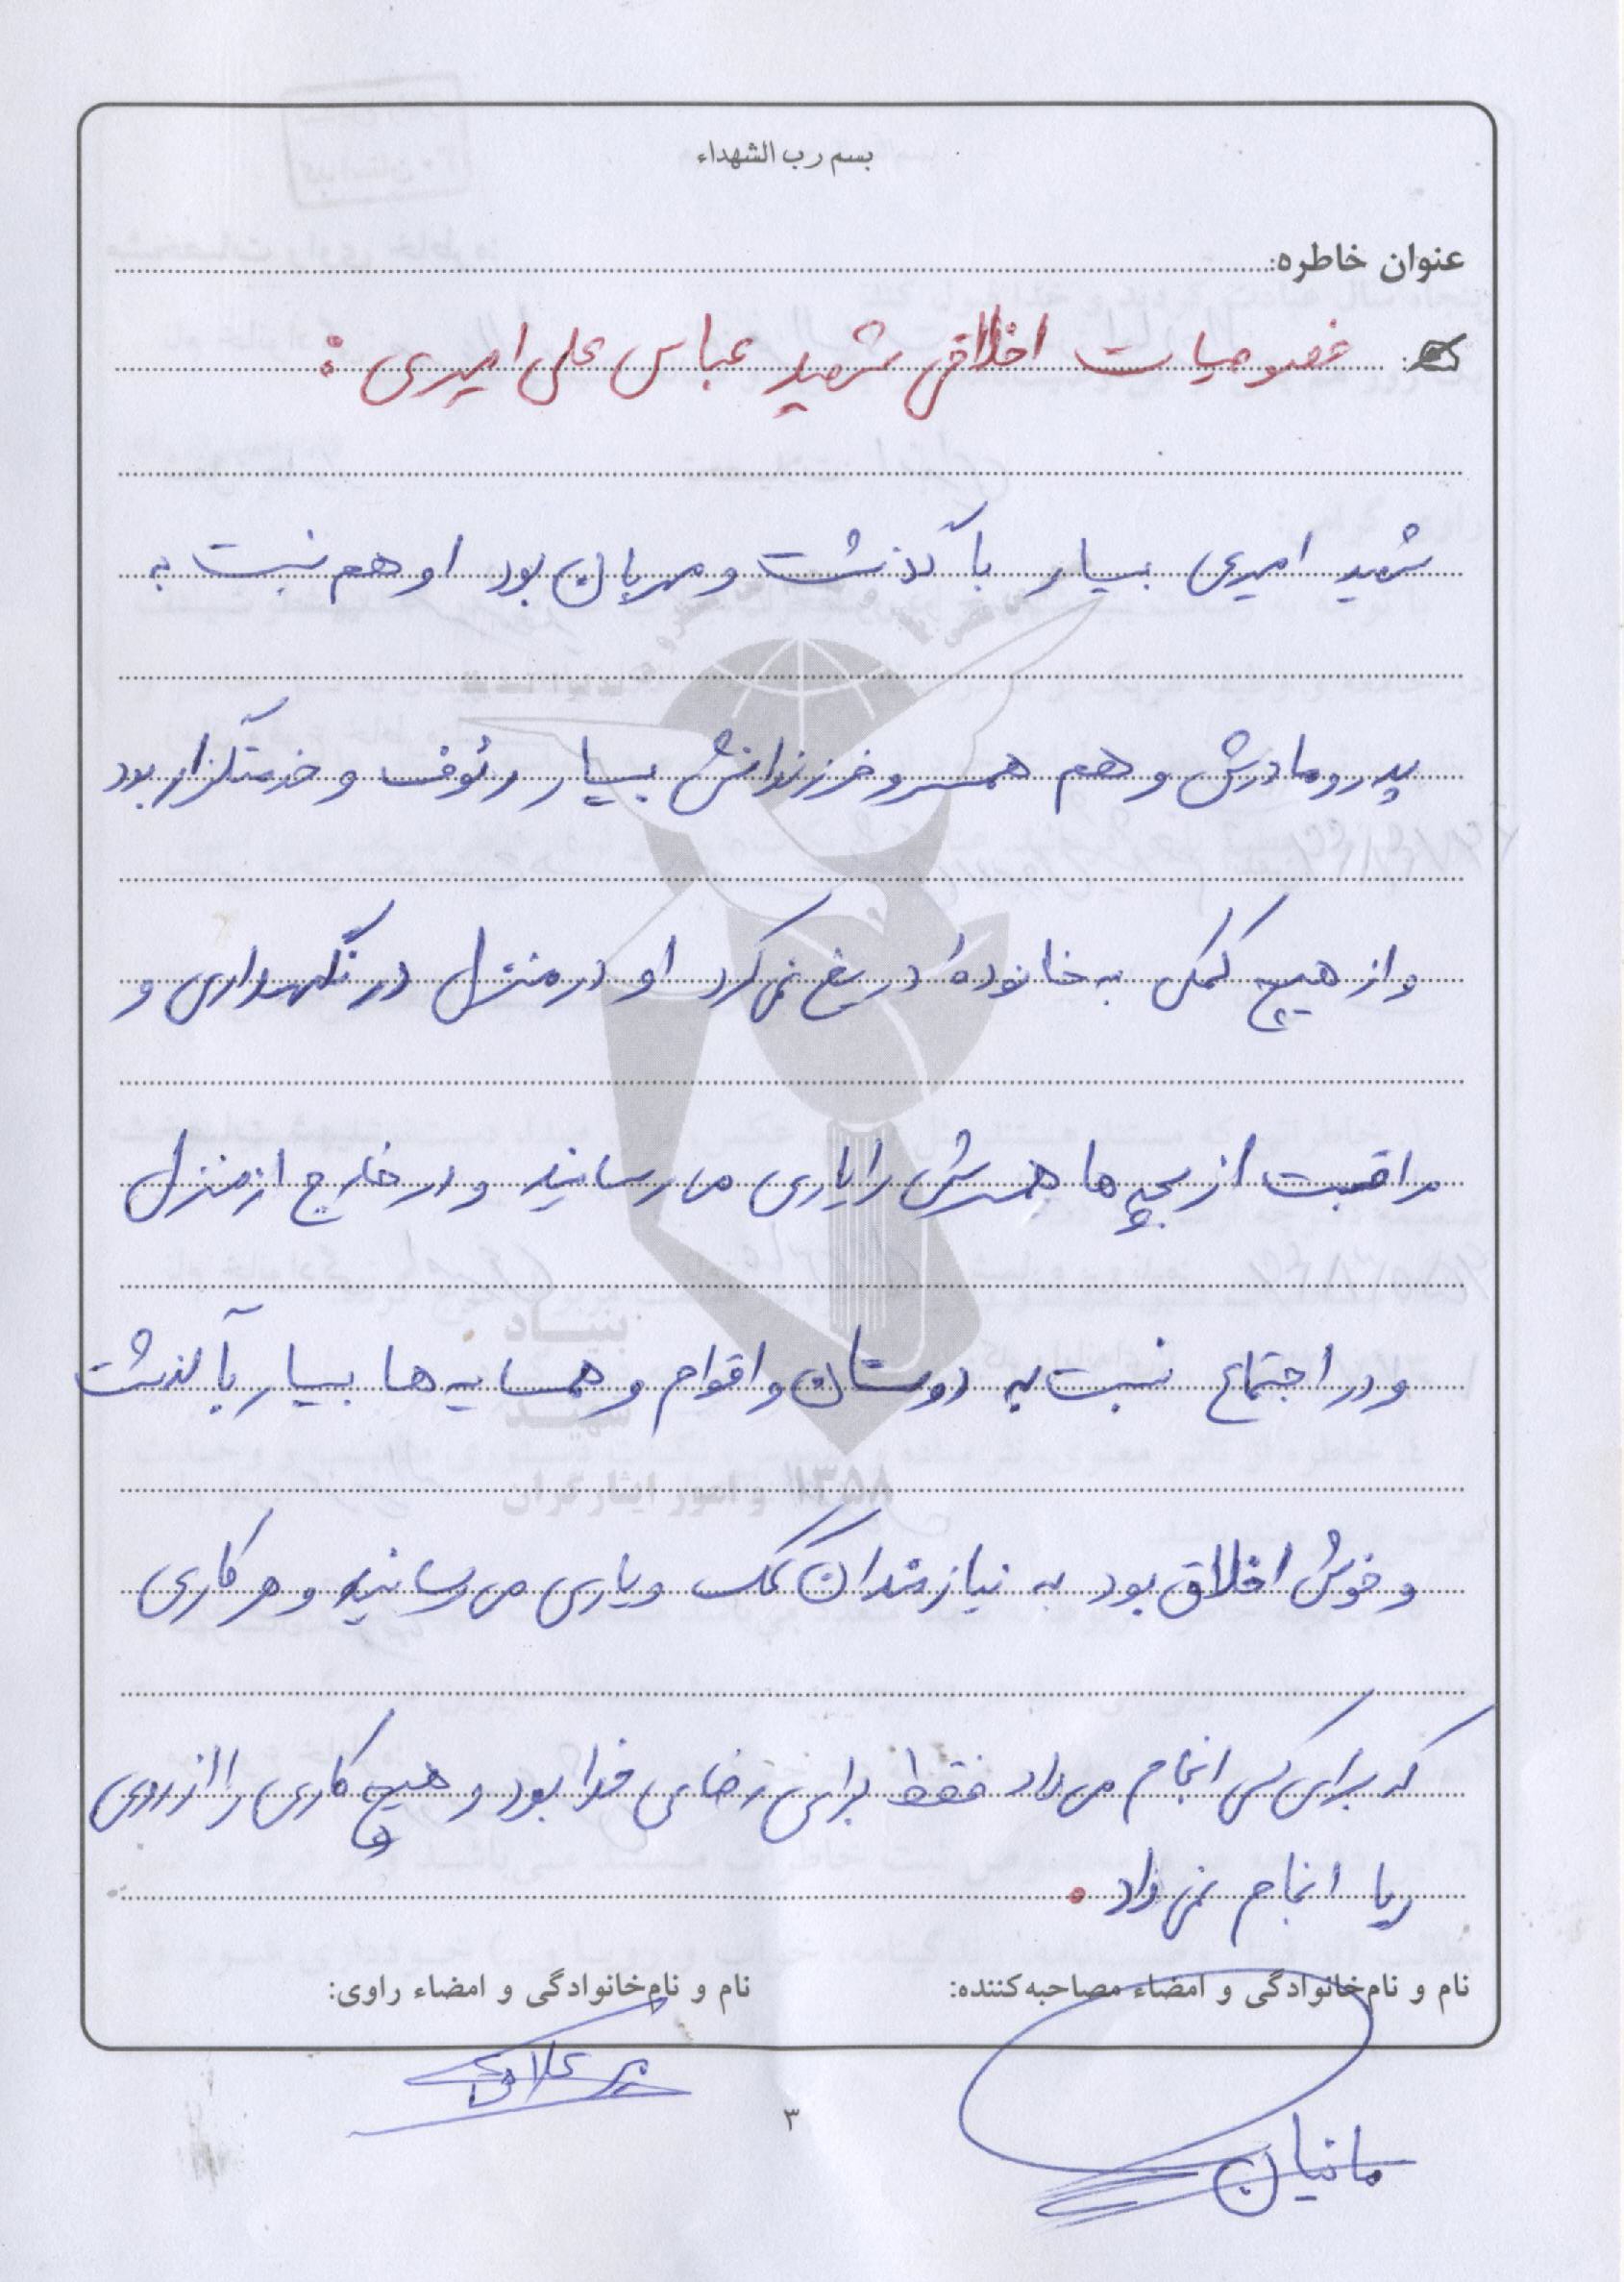 بسم رب الشهداء
عنوان خاطره:
خصوصیات اخلاقی شهید عباس علی امیری :
شهید امیری بسیار با گذشت و مهربان بود او هم نسبت به
پدر و مادرش و هم همسر و فرزندانش بسیار رئوف و خدمتگزار بود
و از هیچ کمکی به خانواده دریغ نمی کرد او در منزل در نگهداری و
مراقبت از بچه ها همسرش را یاری می رسانید و در خارج از منزل
و در اجتماع نسبت به دوستان و اقوام و همسایه ها بسیار با گذشت
و خوش اخلاق بود به نیازمندان کمک و یاری می رسانید و هر کاری
که برای کسی انجام می داد فقط برای رضای خدا بود و هیچ کاری را از روی
ریا انجام نمی داد .
نام و نام‌خانوادگی و امضاء مصاحبه‌کننده:
نام و نام‌خانوادگی و امضاء راوی:
مانیان
۳
بنیاد
شهید
و امور ایثارگران
۱۳۵۸